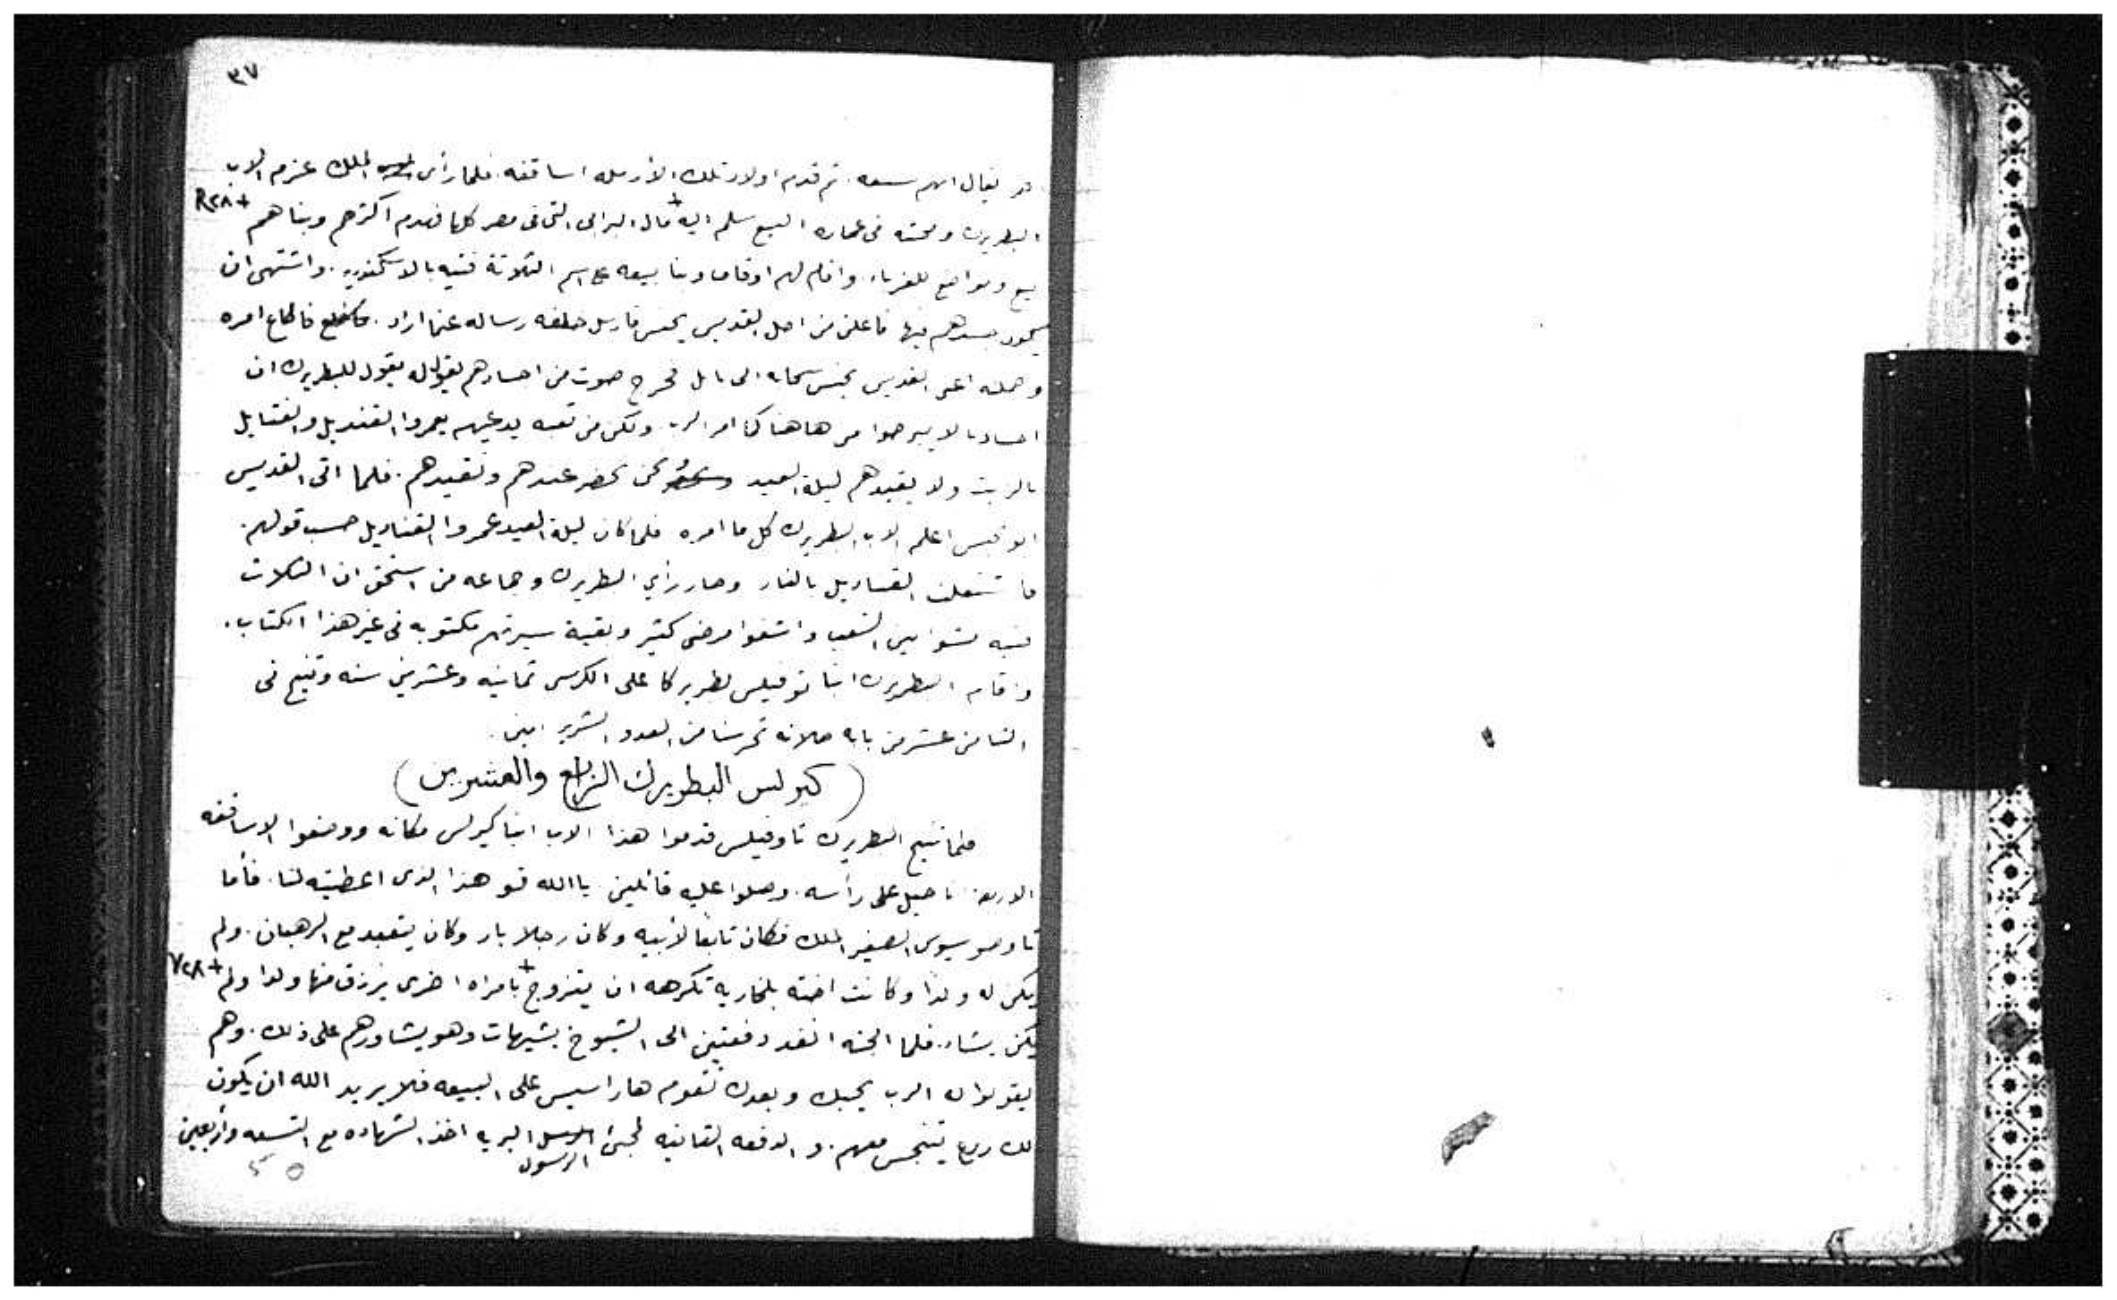 ٣٧
يقال انهم سبعه. ثم قدم اولاد تلك الأرمله اساقفه. فلما رأى الملك عزم الاب
البطريرك ومحبته فى عماره البيع سلم اليه + مال البرابى التى فى مصر كلها فهدم اكثرهم وبناهم + R٢٨
بيع ومواضع للغرباء. واقام لهم اوقافا وبنا بيعه على اسم الثلاثة فتيه بالاسكندريه. واشتهى ان
جسدهم فيها فاعلن من اجل القديس يحنس فارسل خلفه رساله عنما اراد. فاطاع امره
وحمله اعنى القديس يحنس سحابه الى بابل فخرج صوت من اجسادهم يقول للبطريرك ان
اجسادنا لا يبرحوا من هاهنا كما امر الرب ولكن من تعبه يدعيهم يعمروا القنديل والفتايل
بالزيت ولا يقيدهم ليلة العيد ونحن نحضر عندهم ونقيدهم. فلما اتى القديس
ابو يحنس اعلم الاب البطريرك كل ما امره فلما كان ليلة العيد عمروا القناديل حسب قولهم.
فاشتعلت القناديل بالنار وصار رأي البطريرك وجماعه من استحق ان الثلاث
فتيه مشوا بين الشعب واشفوا مرضى كثير وبقية سيرتهم مكتوبه فى غير هذا الكتاب.
واقام البطريرك انبا توفيلس بطريركا على الكرسى ثمانيه وعشرين سنه وتنيح فى
الثامن عشر من بابه صلاته تحرسنا من العدو الشرير امين.
(كيرلس البطريرك الرابع والعشرين)
فلما تنيح البطريرك تاوفيلس قدموا هذا الاب انبا كيرلس مكانه ووضعوا الاساقفه
الاربعة اناجيل على رأسه. وصلوا عليه قائلين يا الله قو هذا الذى اعطيته لنا. فأما
تاوضوسيوس الصغير الملك فكان تابعا لأبيه وكان رجلا بار وكان يتعبد مع الرهبان. ولم
يكن له ولدا وكانت اخته بلخاريه تكرهه ان يتزوج + بامراه اخرى يرزق منها ولدا ولم + V٢٨
يكن يشاء. فلما الجته انفد دفعتين الى الشيوخ بشيهات وهو يشاورهم على ذلك. وهم
يقولوا له الرب يحبك وبعدك تقوم هاراسيس على البيعه فلا يريد الله ان يكون
لك زرع يتنجس معهم. والدفعه الثانيه لمجئ الرسول البريه اخذ الشهاده مع التسعه وأربعين